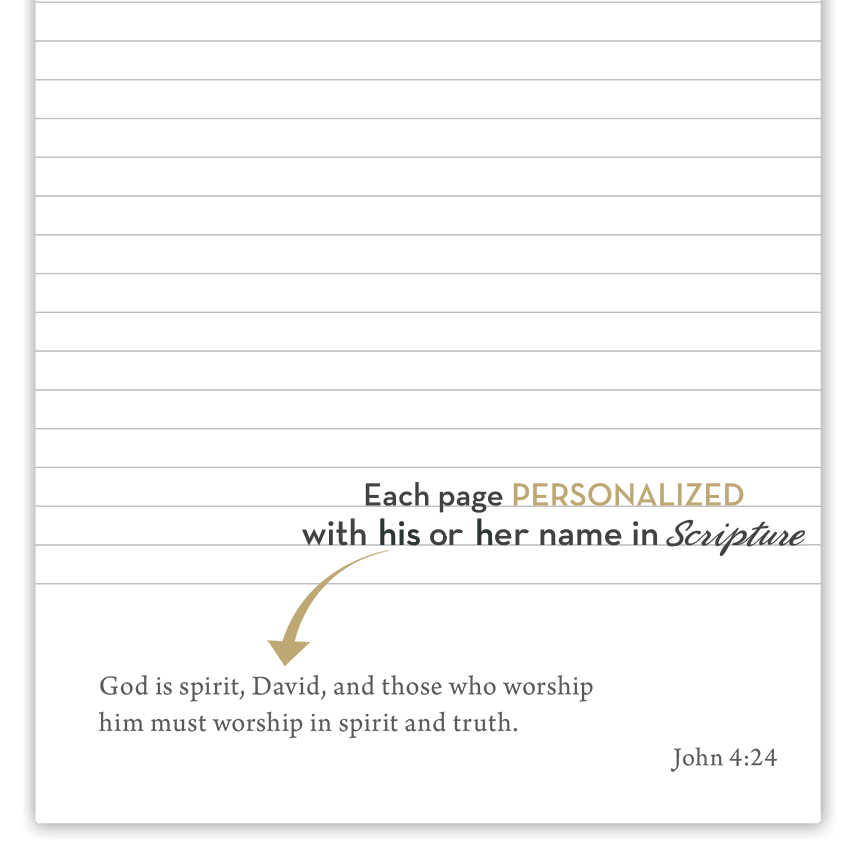 Each page PERSONALIZED
with his or her name in Scripture
God is spirit, David, and those who worship
him must worship in spirit and truth.
John 4:24